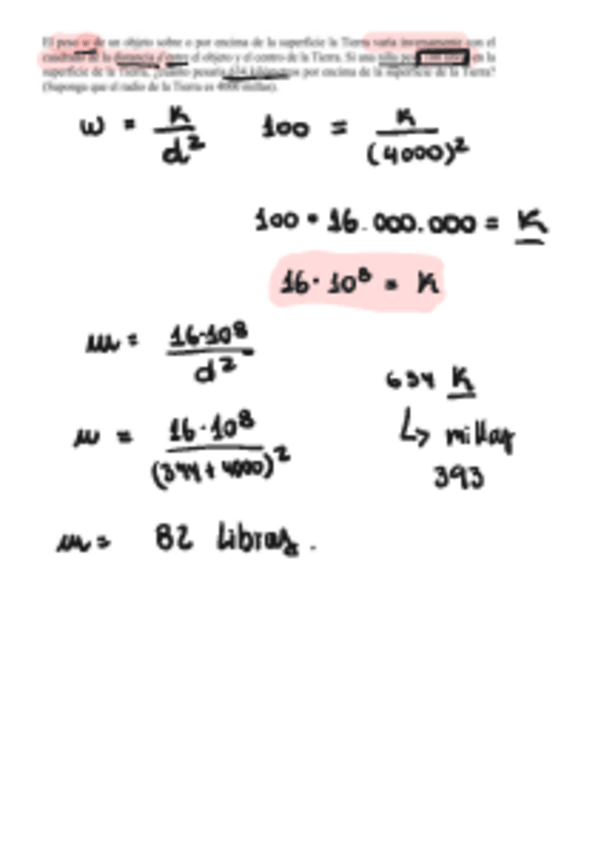 El peso w de un objeto sobre o por encima de la superficie la Tierra varía inversamente con el
cuadrado de la distancia d entre el objeto y el centro de la Tierra. Si una niña pesa 100 libras en la
superficie de la Tierra, ¿cuánto pesaría por encima de la superficie de la Tierra?
(Suponga que el radio de la Tierra es 4000 millas).
w = K / d² 100 = K / (4000)²
100 • 16.000.000 = K
16 · 10⁸ = K
w = 16·10⁸ / d²
634 K
w = 16·10⁸ / (394 + 4000)² ↳ millas
393
w = 82 Libras.